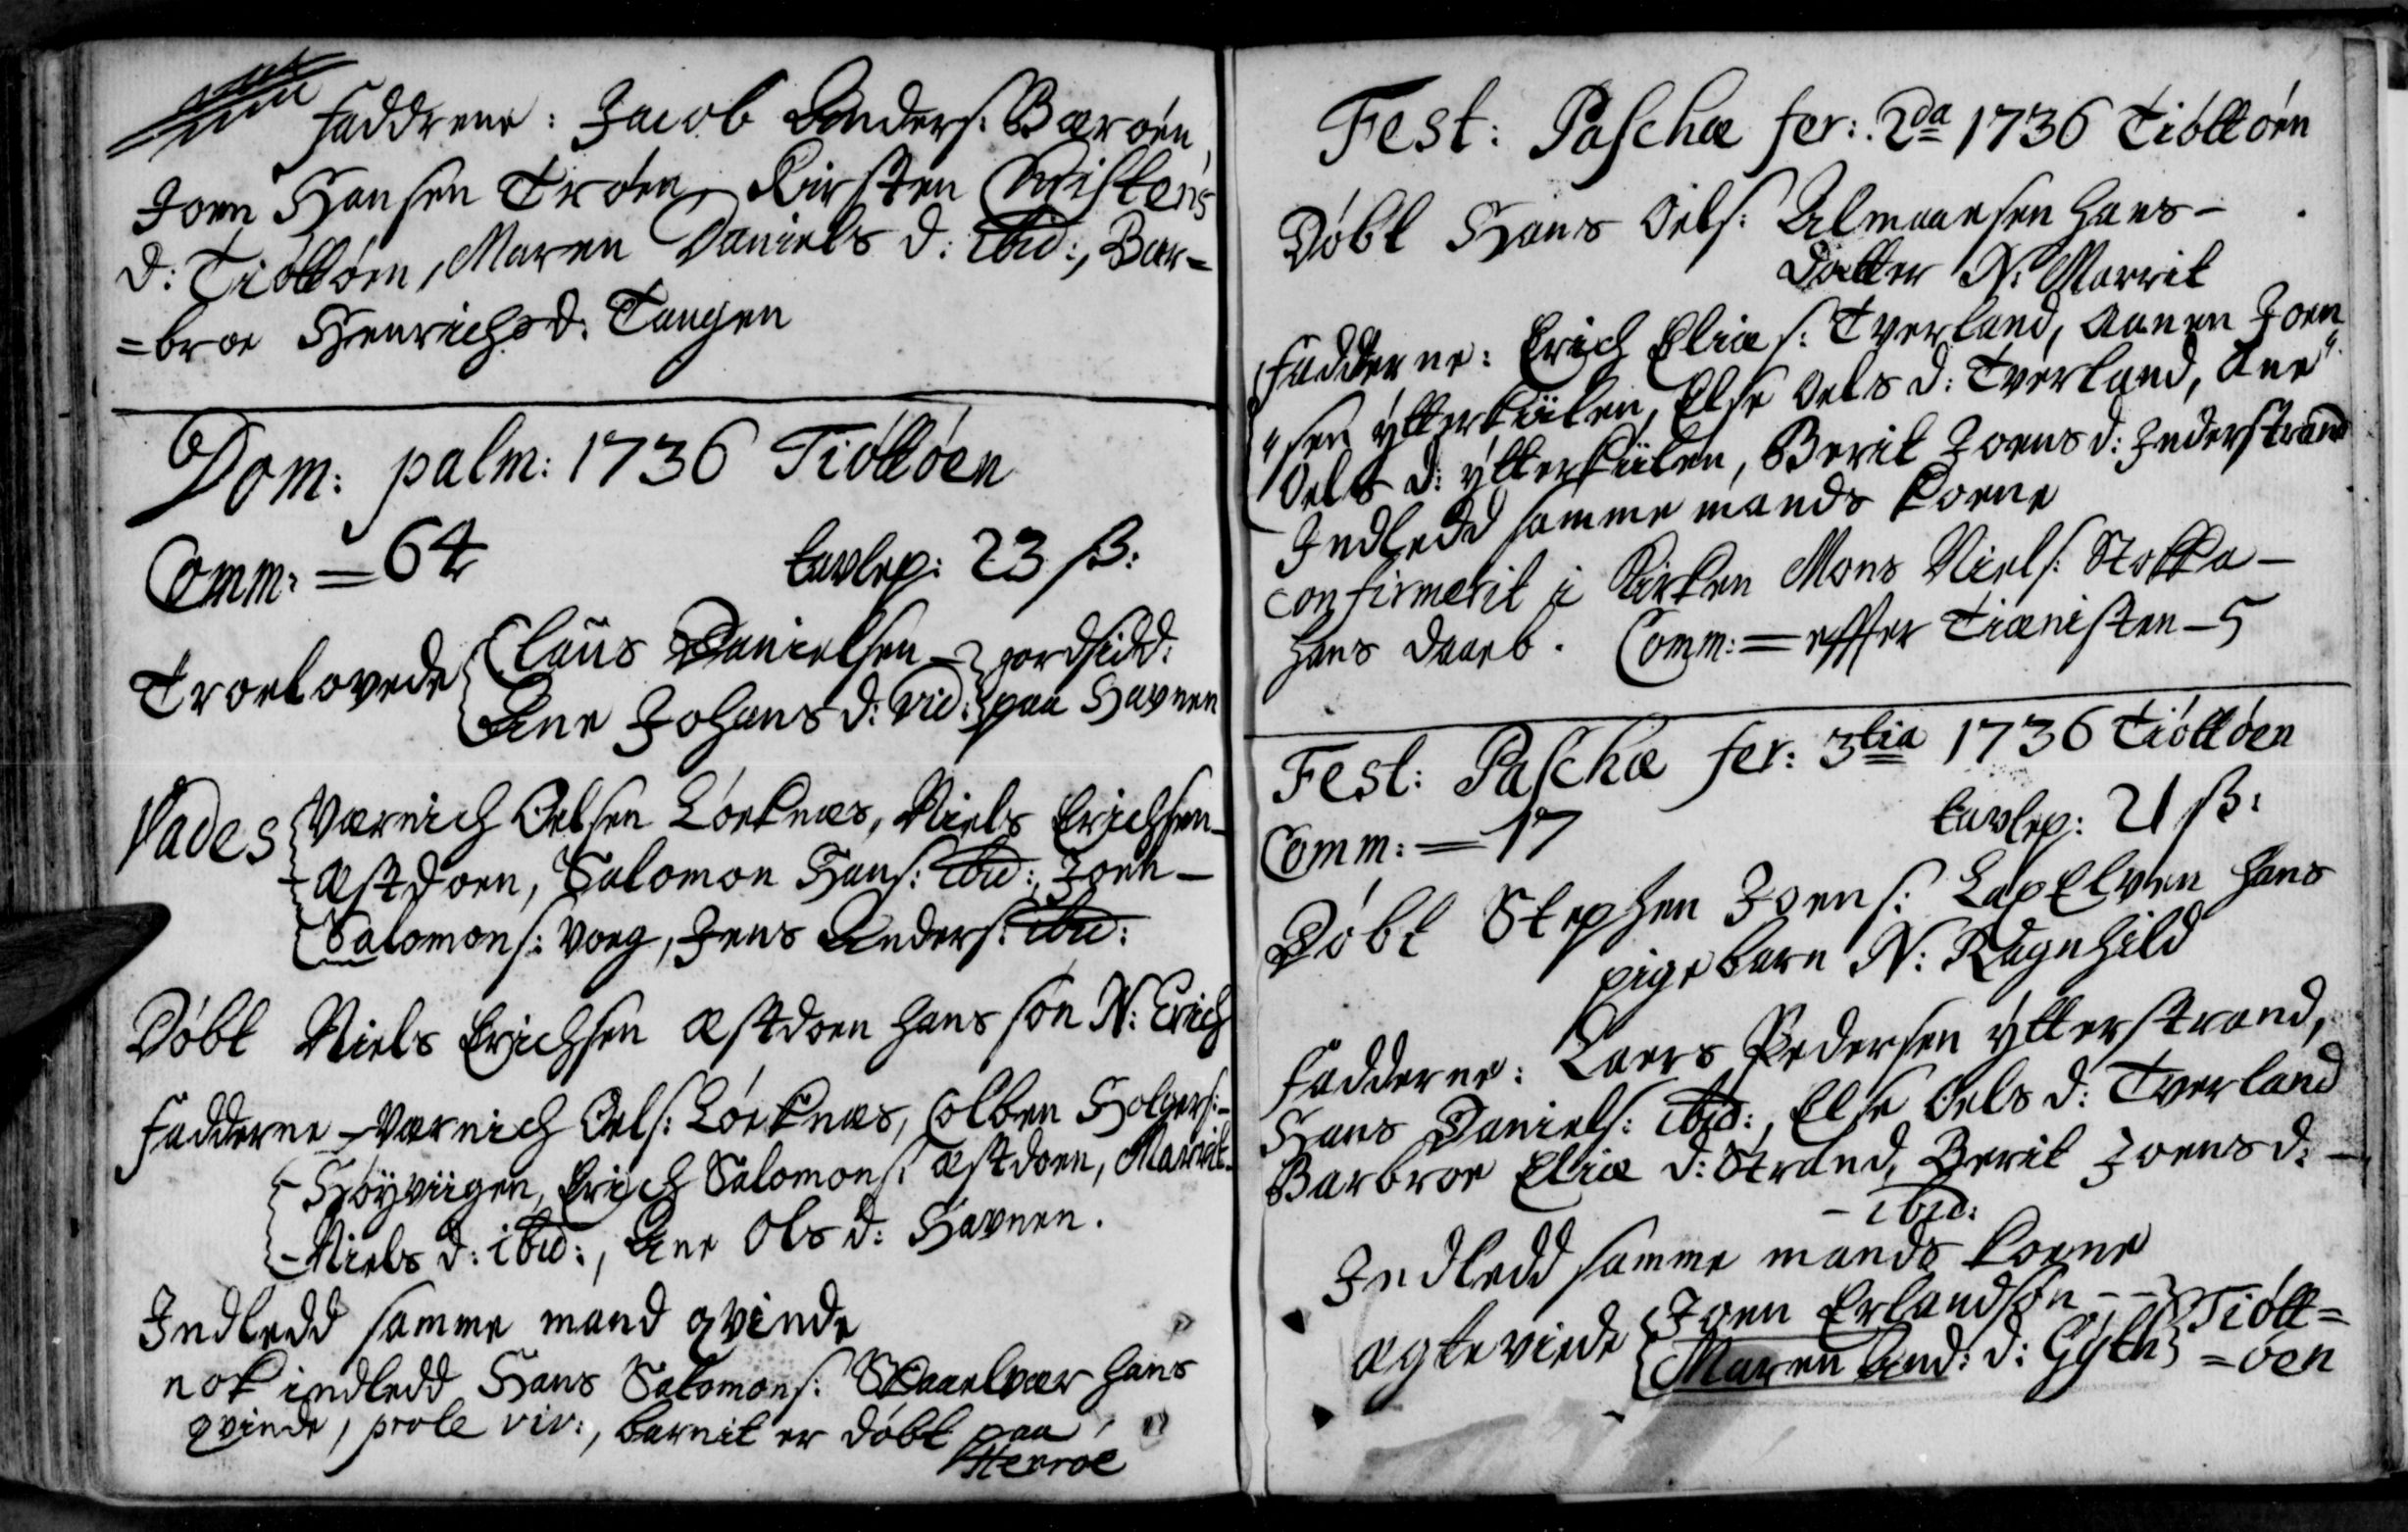 Faddrene: Jacob Anders: Barøen,
Joen Hansen Trøen, Kirsten Christens
d: Tiøttøen, Maren Daniels d: ibid:, Bar=
=broe Henrichs d: Tangen
Dom: palm: 1736 Tiøttøen
Comm: = 64
tavlep: 23 ß:
Troelovede
Claus Danielsen
jordsidd:
Ane Johans d: vid:
paa Havnen
Vades
Værnich Oelsen Løeknæs, Niels Erichsen
Østdoen, Salomon Hans: ibid:, Joen
Salomons: Voeg, Jens Anders: ibid:
Døbt Niels Erichsen Østdoen hans søn N: Erich
Fadderne Værnich Oels: Løeknæs, Colben Holgers:
Høyviigen, Erich Salomons: Østdoen, Marrit
Niels d: ibid:, Ane Ols d: Havnen.
Indledd samme mand qvinde
nok indledd Hans Salomons: Skaaelvær hans
qvinde, prole viv:, barnit er døbt paa
Herrøe
Fest: Paschæ fer: 2da 1736 Tiøttøen
Døbt Hans Oels: Almaaesen hans
Datter N: Marrit
Fadderne: Erich Eliæ s: Tverland, Aanen Joen
sen ytterkiilen, Else Oels d: Tverland, Ane
Oels d: ytterkiilen, Berit Joens d: Inderstrand
Indledd samme mands koene
confirmerit i Kirken Mons Niels: Stokka
hans daaeb. Comm: = effter Tiænisten - 5
Fest: Paschæ fer: 3tia 1736 Tiøttøen
Comm: = 17
tavlep: 21 ß:
Døbt Stephen Joens: Lapelven hans
pigebarn N: Ragnhild
Fadderne: Laers Pedersen ytterstrand,
Hans Daniels: ibid:, Else Oels d: Tverland
Barbroe Eliæ d: Strand, Berit Joens d:
ibid:
Indledd samme mands koene
ægteviede
Joen Erlandsøn
Tiøtt=
Maren And: d: Gyth
=øen